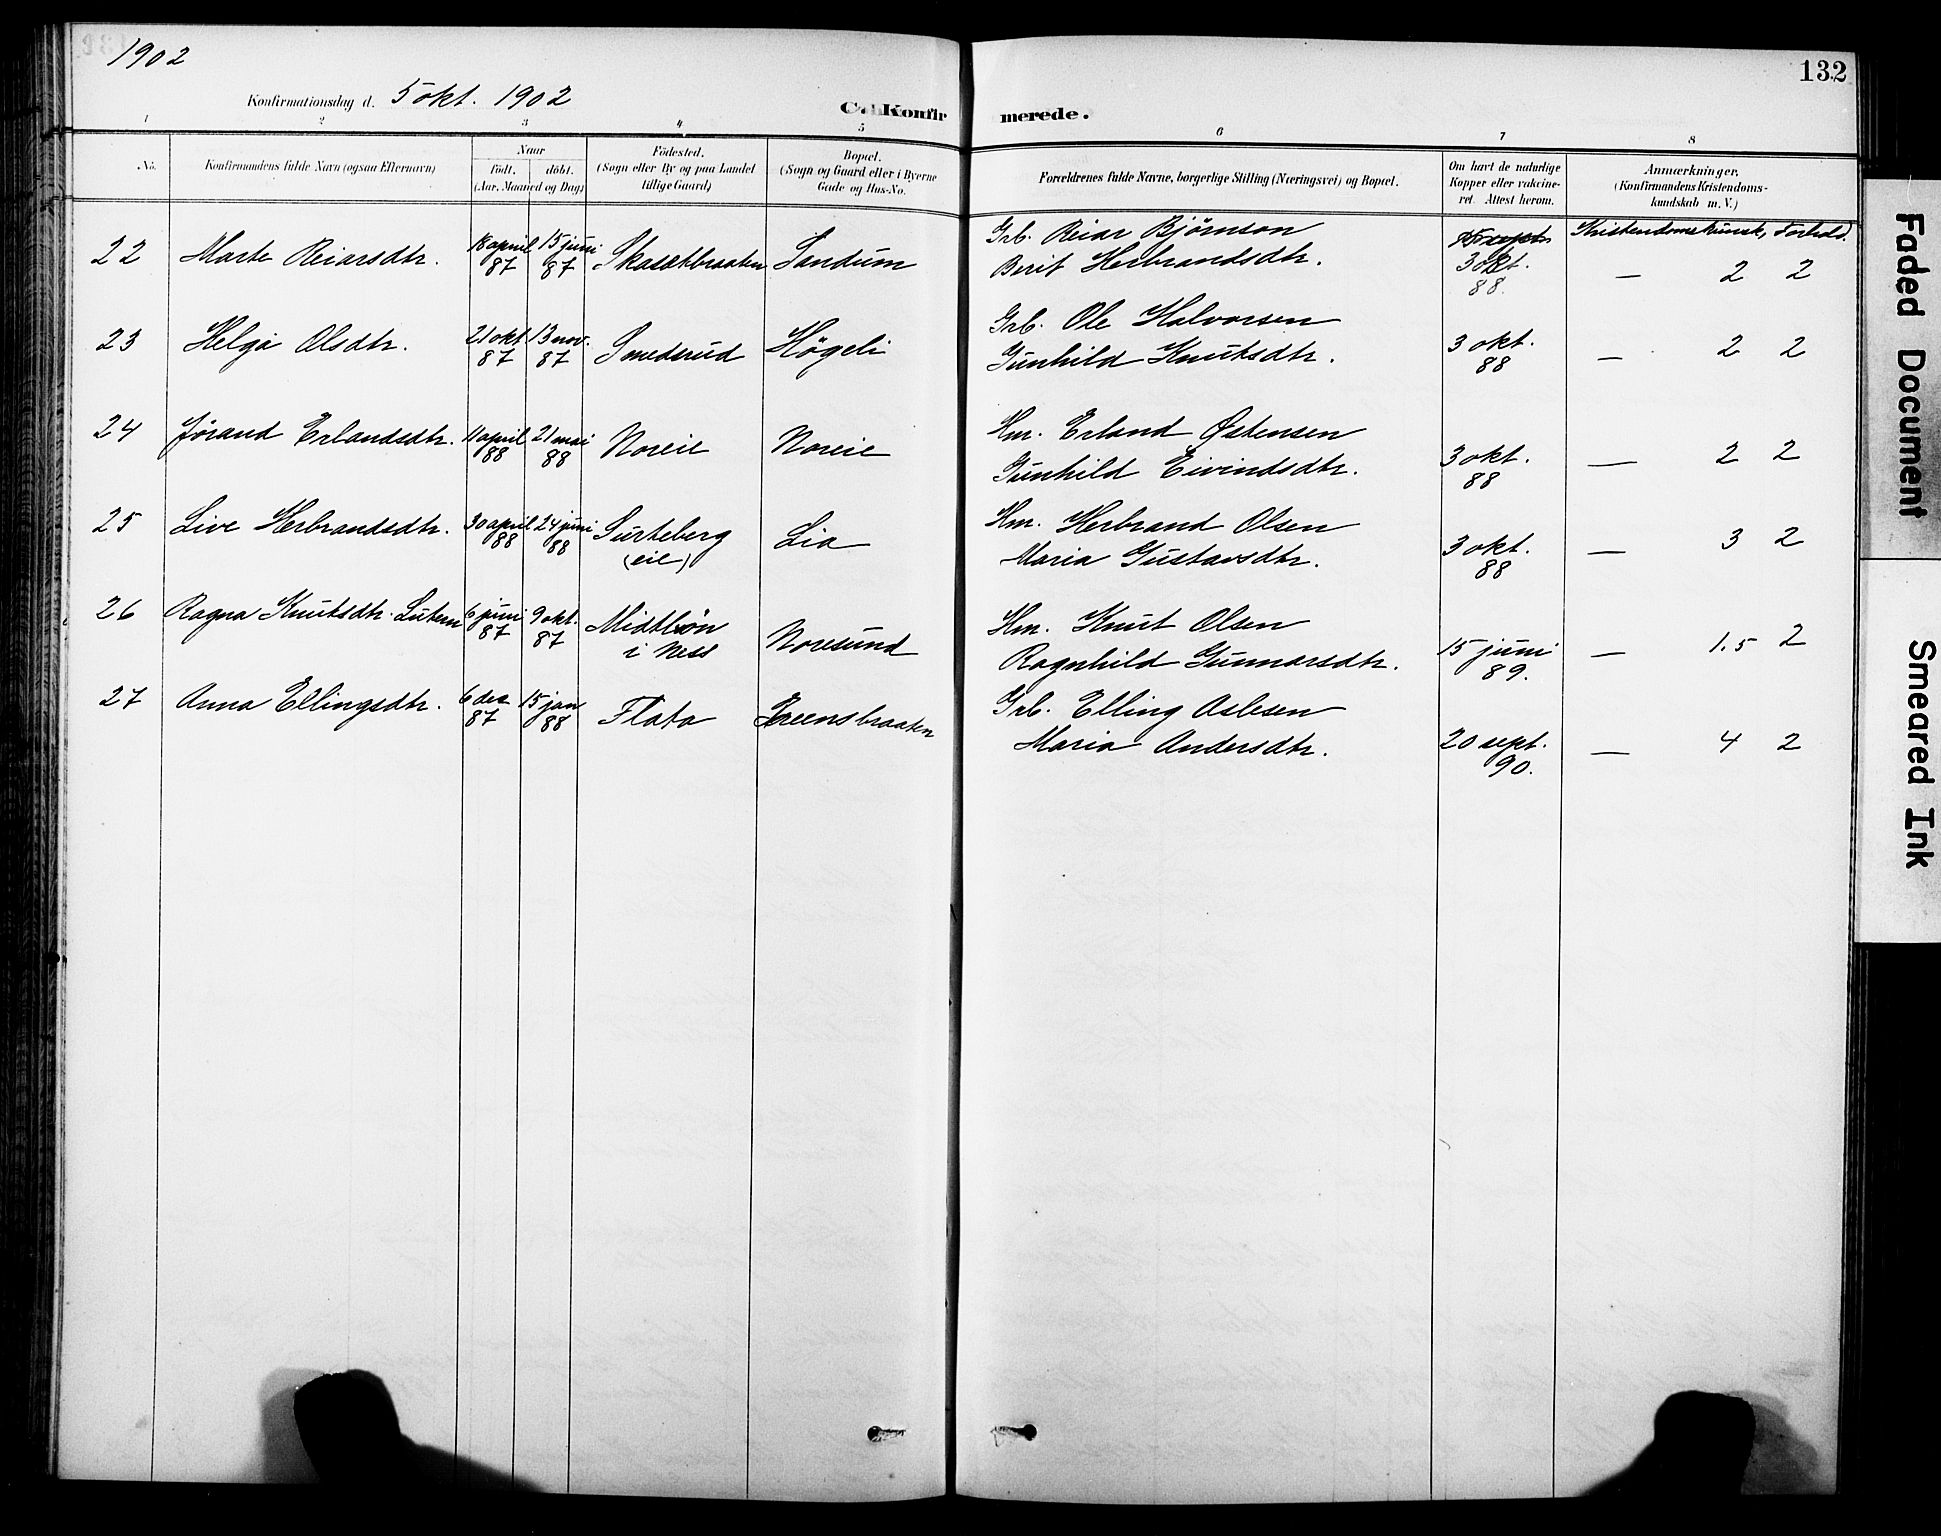 1902
132
Konfirmationsdag d. 5 okt. 1902
C. Konfirmerede.
1 2 3 4 5 6 7 8
No.
Konfirmandens fulde Navn (ogsaa Efternavn)
Naar
födt. döbt.
(Aar, Maaned og Dag)
Födested.
(Sogn eller By og paa Landet
tillige Gaard)
Bopæl.
(Sogn og Gaard eller i Byerne
Gade og Hus-No.
Forældrenes fulde Navne, borgerlige Stilling (Næringsvei) og Bopæl.
Om havt de naturlige
Kopper eller vakcine-
ret. Attest herom.
Anmærkninger.
(Konfirmandens Kristendoms-
kundskab m. V.)
Kristendomskunsk, Forhold.
22 Marte Reiarsdtr. 18 april 87 15 juni 87 Skasætbraaten Sandum Grb. Reiar Bjørnson
Berit Herbrandsdtr. 3 okt. 88. — 2 2
23 Helga Olsdtr. 21 okt 87 13 nov. 87 Smedsrud Høgeli Grb. Ole Halvorsen
Gunhild Knutsdtr. 3 okt. 88 — 2 2
24 Jørand Erlandsdtr. 11 april 88 21 mai 88 Noreie Noreie Hm. Erland Østensen
Gunhild Eivindsdtr. 3 okt. 88 — 2 2
25 Live Herbrandsdtr. 30 april 88 24 juni 88 Surteberg (eie) Lia Hm. Herbrand Olsen
Maria Gustavsdtr. 3 okt. 88 — 3 2
26 Ragna Knutsdtr. 6 juni 87 9 okt. 87 Midtløn i Ness Noresund Hm. Knut Olsen
Ragnhild Gunnarsdtr. 15 juni 89. — 1.5 2
27 Anna Ellingsdtr. 6 des 87 15 jan 88 Flata Greensbraaten Grb. Elling Aslesen
Maria Andersdtr. 20 sept. 90. — 4 2
Faded Document
Smeared Ink